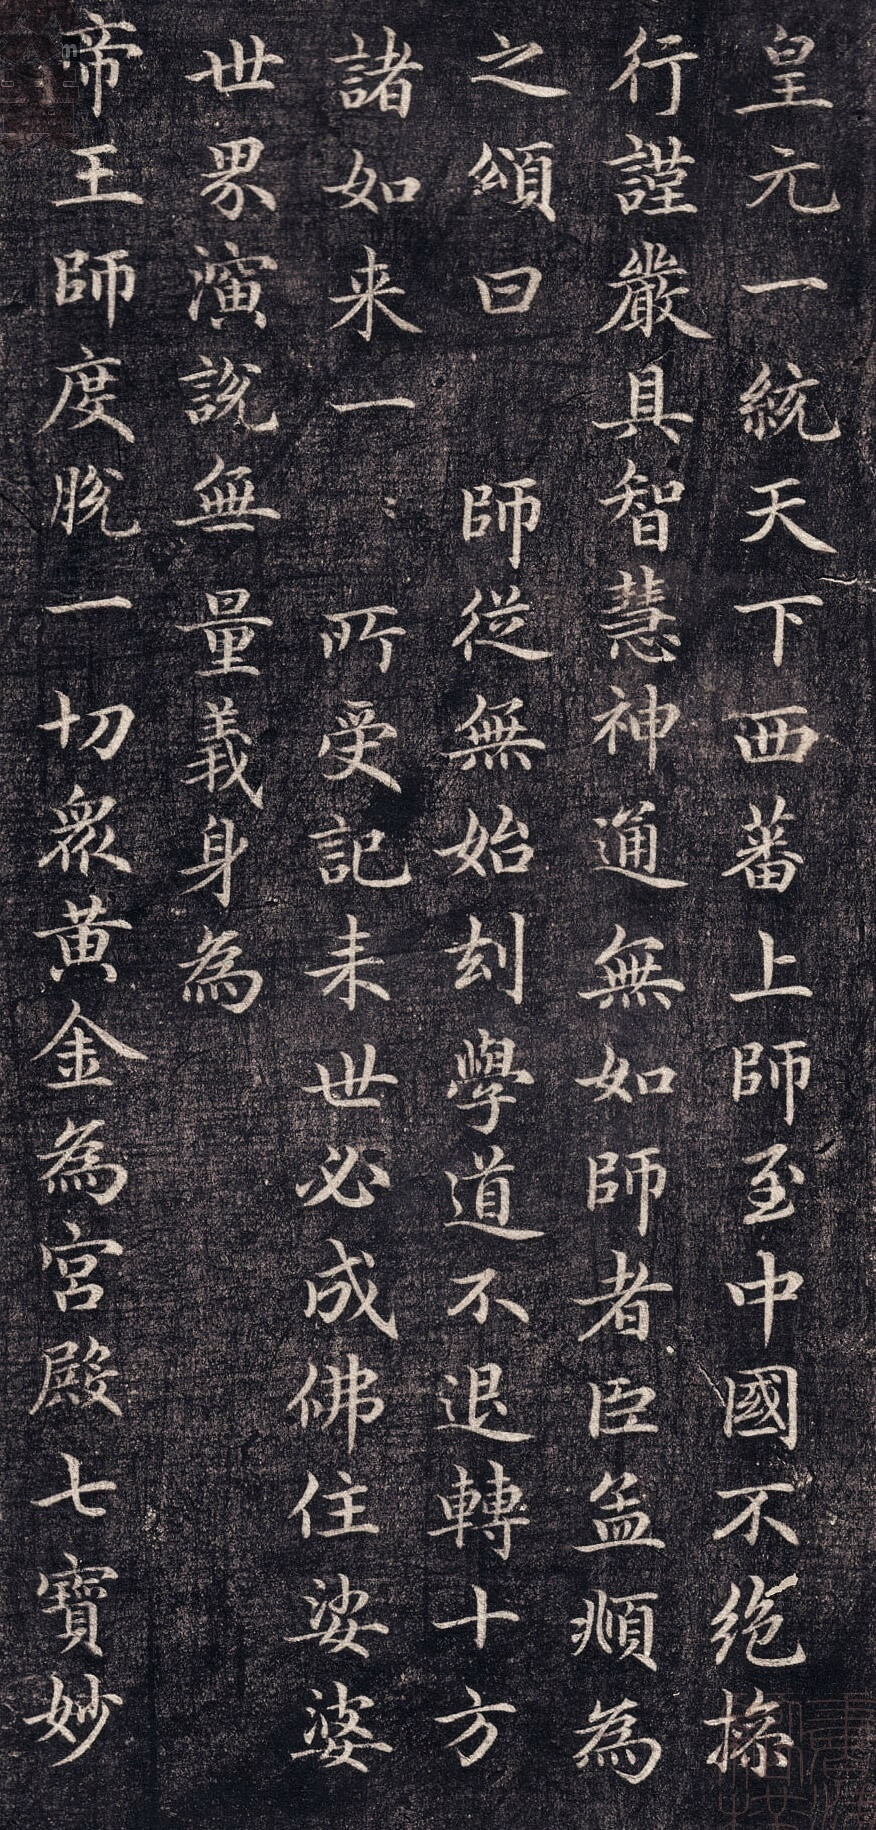 皇元一統天下西蕃上師至中國不絶操
行謹嚴具智慧神通無如師者臣孟順為
之頌曰　師從無始刦學道不退轉十方
諸如来一〻所受記来世必成佛住娑婆
世界演說無量義身為
帝王師度脫一切衆黄金為宫殿七寶妙